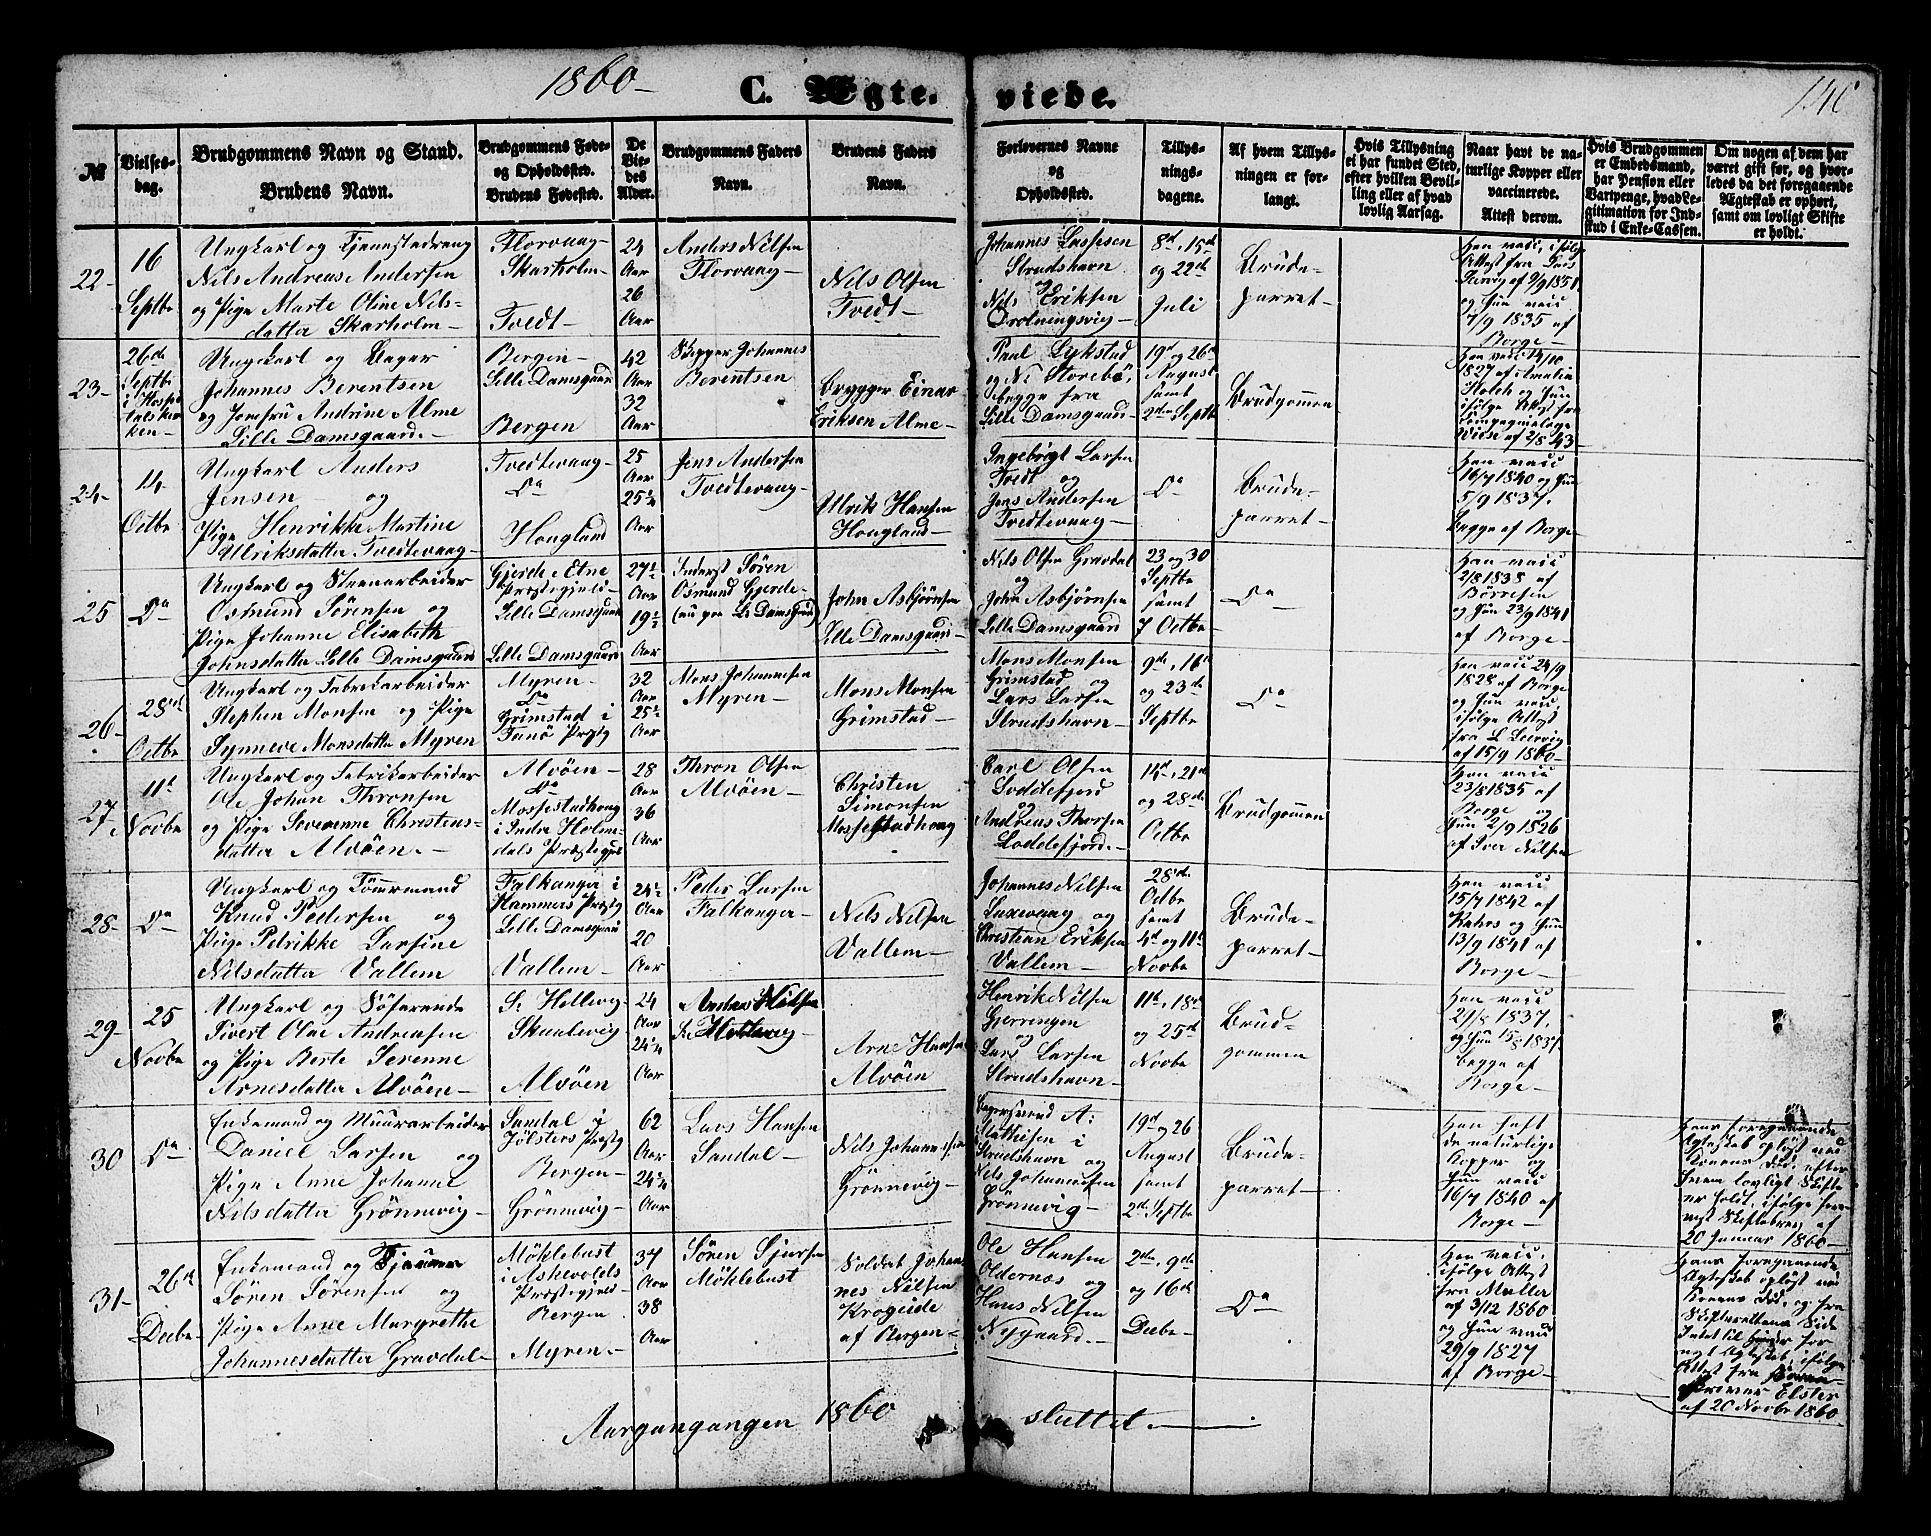 1860-
C. Ægte-
viede.
146
№
Vielses-
dag.
Brudgommens Navn og Stand.
Brudens Navn.
Brudgommens Føde-
og Opholdssted.
Brudens Fødested.
De
Vie-
des
Alder.
Brudgommens Faders
Navn.
Brudens Faders
Navn.
Forlovernes Navne
og
Opholdssted.
Tillys-
nings-
dagene.
Af hvem Tillys-
ningen er for-
langt.
Hvis Tillysning
ei har fundet Sted,
efter hvilken Bevil-
ling eller af hvad
lovlig Aarsag.
Naar havt de na-
turlige Kopper eller
vaccinerede.
Attest derom.
Hvis Brudgommen
er Embedsmand,
har Pension eller
Vartpenge, hvad Le-
gitimation for Ind-
skud i Enke-Cassen.
Om nogen af dem har
været gift før, og hvor-
ledes da det foregaaende
Ægteskab er ophørt,
samt om lovligt Skifte
er holdt.
22-
16
Septbr
Ungkarl og Tjenestedreng
Nils Andreas Andersen
og Pige Marte Oline Nils-
datter Skarholm-
Florvaag-
Skarholm-
Tvedt-
24
Aar
26
Aar
Anders Nilsen
Florvaag-
Nils Olsen
Tvedt-
Johannes Lassesen
Strudshavn
og
Nils Eriksen
Drotningsvig-
8d, 15de
og 22de
Juli
Brude-
parret-
og hun vacc
7/9 1835 af
Borge-
23-
26de
Septbr
i Hospi-
talskir-
ken-
Ungkarl og Bager
Johannes Berentsen
og Jomfru Andrine Alme
Lille Damsgaard.-
Bergen-
Lille Damsgaard
Bergen
42
Aar
32
Aar
Skipper Johannes
Berentsen
Brygger Einar
Eriksen Alme-
Paul Lykstad
og N. Storebö,
begge fra
Lille Damsgaard-
19d og 26de
August
samt
2den Septbr
Brudgommen
Han vacc 14/10
1827 af Amalia
Holch og hun
ifølge Attest fra
Wiesn af 2/8 43-
24-
14
Octbr
Ungkarl Anders
Jensen - og
Pige Henrikke Martine
Ulriksdatter Tvedtevaag-
Tvedtevaag-
Do
Hougland
25
Aar
25¼
Aar
Jens Andersen
Tvedtevaag-
Ulrik Hansen
Hougland-
Ingebrigt Larsen
Tvedt og
Jens Andersen
Tvedtevaag-
Do
Brude-
parret-
Han vacc
16/7 1840 og hun
5/9 1837.
begge af Borge-
25
Do
Ungkarl og Steenarbeider
Osmund Sörensen og
Pige Johanne Elisabeth
Johnsdatter Lille Damsgaard
Gjerde i Etne
Præstegjeld-
Lille Damsgaard
Lille Damsgaard
27½
Aar
19½
Aar
Inderst Sören
Osmund Gjerde-
(nu paa Ll Damsgaard)
John Asbjörnsen
Lille Damsgaard-
Nils Olsen Gravdal
og
John Asbjörnsen
Lille Damsgaard
23 og 30
Septbr
samt
7 Octbr-
Do-
Han vacc
2/8 1838 af
Börresen
og hun 23/9 1841
af Borge-
26-
28de
Octbr
Ungkarl og Fabrikarbeider
Stephen Monsen og Pige
Synneve Monsdatter Myren
Myren-
Do
Grimstad i
Fanö Præstg
32
Aar
25½
Aar
Mons Johannesen
Myren-
Mons Monsen
Grimstad-
Mons Monsen
Grimstad og
Lars Larsen
Strudshavn-
9de, 16de
og 23de
Septbr
Do-
Han vacc 24/9
1828 af Borge
og hun vacc
ifølge Attest
fra L Leirvig
af 15/9 1860-
27-
11te
Novbr
Ungkarl og Fabrikarbeider
Ole Johan Thronsen
og Pige Severenne Christens-
datter Alvöen.-
Alvöen-
Do
Mossestadhoug
i Indre Holme-
dals Præstegjeld
28
Aar
36
Aar
Thron Olsen
Alvöen-
Christen
Simonsen
Mossestadhoug
Carl Olsen
Loddefjord
og
Andreas Thorsen
Loddefjord.-
14de, 21de
og 28de
Octbr
Brudgommen
Han vacc
23/8 1835 af
Borge og
hun 2/9 1826
af Iver Nilsen
28-
Do
Ungkarl og Tömmermand
Knud Pedersen og
Pige Petrikke Larsine
Nilsdatter Vallem
Falkanger i
Hammers Præstg
Lille Damsgaard
Vallem-
24½
Aar
20
Aar
Peder Larsen
Falkanger-
Nils Nilsen
Vallem-
Johannes Nilsen
Laxevaag og
Christian Eriksen
Vallem-
28de
Octbr
samt
4de og 11te
Novbr
Brude-
parret-
Han vacc
15/7 1842 af
Rahrs og hun
13/9 1841 af
Borge-
29-
25
Novbr
Ungkarl og Söfarende
Sivert Olae Andreasen
og Pige Berte Serenne
Arnesdatter Alvöen-
St. Hellevig-
Skaalevig-
Alvöen
24
Aar
24¼
Aar
Andreas Nilsen
St. Hellevig-
Arne Hansen
Alvöen
Henrik Nilsen
Gjerringen
og
Lars Larsen
Strudshavn-
11te, 18de
og 25de
Novbr
Brud-
gommen
Han vacc
21/8 1837,
og hun 15/8 1837.
begge af
Borge-
30
Do
Enkemand og Muurarbeider
Daniel Larsen og
Pige Anne Johanne
Nilsdatter Grönnevig-
Sandal i
Jölsters Præstg
Bergen-
Grönnevig-
62
Aar
24¼
Aar
Lars Hansen
Sandal-
Nils Johannesen
Grönnevig-
Bagersvend A.
Mathisen i
Strudshavn og
Nils Johannesen
Grönnevig-
19d og 26
August
samt
2d Septbr
Brude-
parret-
Han haft
de naturlige
Kopper og
hun vacc
16/7 1840 af
Borge-
Hans foregaaende
Ægteskab oplöst ved
Konens död, efter
hvem lovligt Skifte
er holdt, ifølge fore-
vist Skiftebrev af
20 Januar 1860-
31-
26de
Decbr-
Enkemand og Tjener
Sören Sörensen og
Pige Anne Margrethe
Johannesdatter Gravdal-
Möklebust
i Askevolds
Præstegjeld-
Bergen
Myren-
37
Aar
38
Aar
Sören Sjursen
Möklebust
Soldat Johan-
nes Nilsen
Krogeide
af Bergen-
Ole Hansen
Oldernæs og
Hans Nilsen
Nygaard.-
2den, 9de
og 16de
Decbr-
Do-
Han vacc.
ifølge Attest
fra Müller
af 3/12 1860
og hun vacc
29/9 1827
af Borge-
Hans foregaaende
Ægteskab oplöst ved
Konens Död, og fra
Skifterettens Side
Intet til Hinder for
nyt Ægteskab, ifølge
Attest fra
Pröver Elster
af 20 Novbr 1860
Aargangangen 1860 sluttet.-